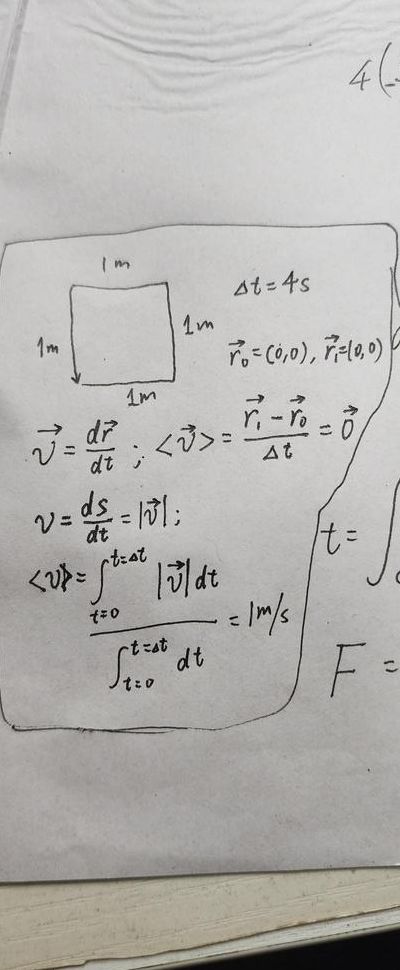 4(
1m
Δt = 4s
1m
1m
r⃗₀ = (0,0), r⃗₁ = (0,0)
1m
v⃗ = dr⃗/dt ; <v⃗> = (r⃗₁ − r⃗₀)/Δt = 0⃗
v = ds/dt = |v⃗| ;
t = ∫
<v> = ∫_{t=0}^{t=Δt} |v⃗| dt / ∫_{t=0}^{t=Δt} dt = 1m/s
F =